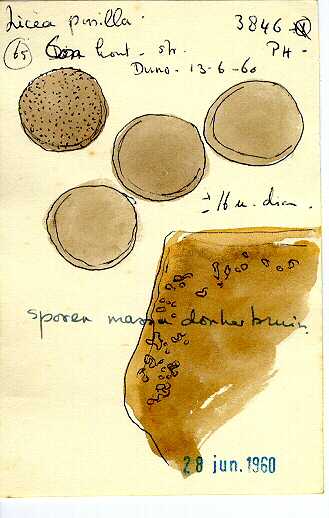 Licea pusilla. 3846
65 hout - str. PH -
Duno - 13-6-60
± 16 u. diam.
sporen massa donkerbruin
28 jun. 1960